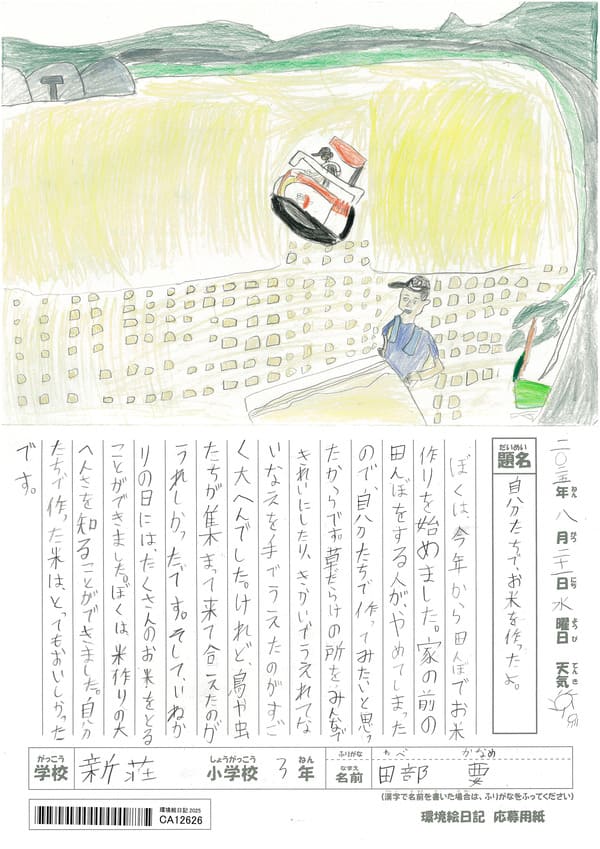 二〇二五年 八月 二十日 水曜日 天気
ねん がつ にち ようび てんき
だいめい
題名 自分たちで、お米を作ったよ。
ぼくは、今年から田んぼでお米
作りを始めました。家の前の
田んぼをする人が、やめてしまった
ので、自分たちで作ってみたいと思っ
たからです。草だらけの所をみんなで
きれいにしたり、きかいでうえれてな
いなえを手でうえたのがすご
く大へんでした。けれど、鳥や虫
たちが集まって来て合えたのが
うれしかったです。そして、いねか
りの日には、たくさんのお米をとる
ことができました。ぼくは、米作りの大
へんさを知ることができました。自分
たちで作った米は、とってもおいしかった
です。
がっこう しょうがっこう ねん ふりがな かなめ
学校 新荘 小学校 3年 名前 田部 要
なまえ
(漢字で名前を書いた場合は、ふりがなをふってください)
環境絵日記 応募用紙
環境絵日記 2025
CA12626